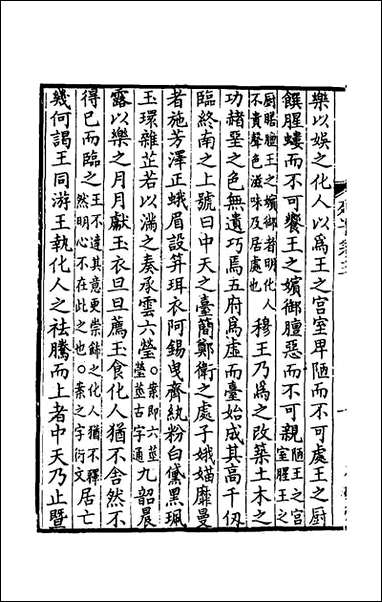 樂以娛之化人以爲王之宮室卑陋而不可處王之厨
饌腥螻而不可饗王之嬪御膻惡而不可親陋王之宮室腥王之
厨膳膻王之嬪御者明化人不貴聲色滋味及居處也穆王乃爲之改築土木之
功赭堊之色無遺巧焉五府爲虛而臺始成其高千仞
臨終南之上號曰中天之臺簡鄭衞之處子娥媌靡曼
者施芳澤正蛾眉設笄珥衣阿錫曳齊紈粉白黛黑珮
玉環雜芷若以滿之奏承雲六瑩○案即六莖瑩莖古字通九韶晨
露以樂之月月獻玉衣旦旦薦玉食化人猶不舍然不
得已而臨之王不達其意更崇飾之化人猶不釋然明心不在此之也○案之字衍文居亡
幾何謁王同游王執化人之袪騰而上者中天乃止曁